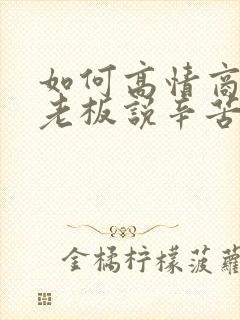 如何高情商
老板说辛苦
金橘柠檬菠萝